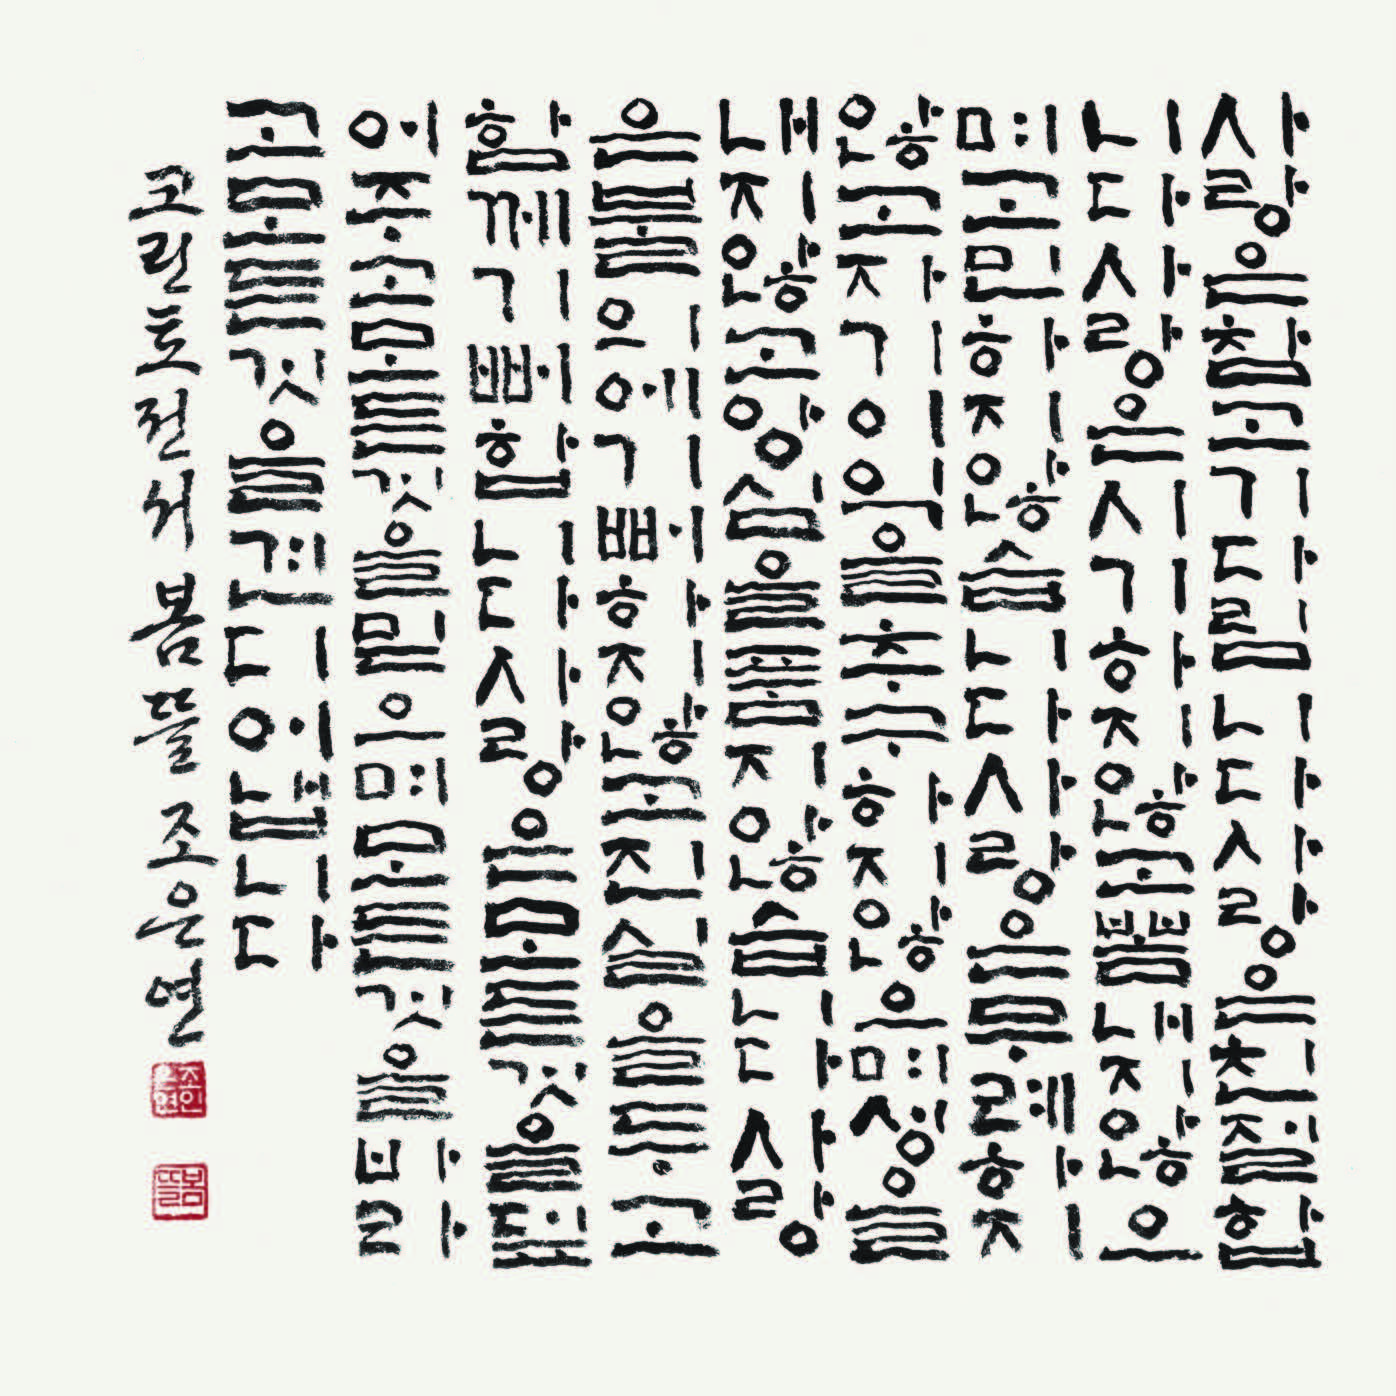 사랑은참고기다립니다사랑은친절합
니다사랑은시기하지않고뽐내지않으
며교만하지않습니다사랑은무례하지
않고자기이익을추구하지않으며성을
내지않고앙심을품지않습니다사랑
은불의에기뻐하지않고진실을두고
함께기뻐합니다사랑은모든것을덮
어주고모든것을믿으며모든것을바라
고모든것을견디어냅니다
코린토전서 봄뜰 조은연
봄뜰